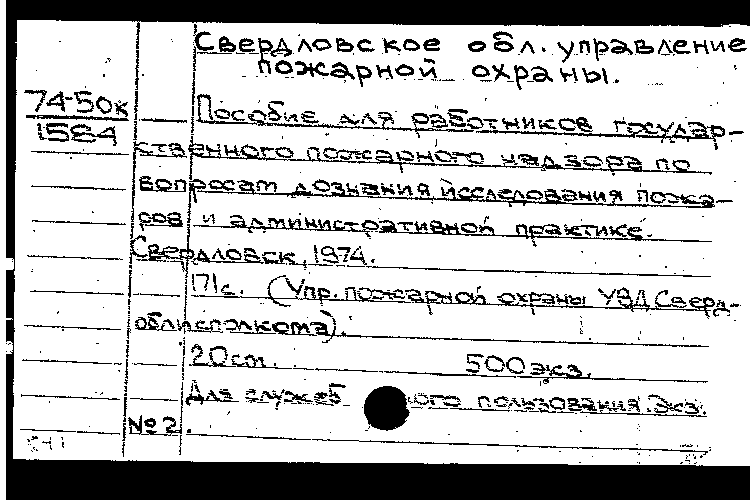 Свердловское обл. управление
пожарной охраны.
74-50к
1584
Пособие для работников государ-
ственного пожарного надзора по
вопросам дознания, исследования пожа-
ров и административной практике.
Свердловск, 1974.
171с. (Упр. пожарной охраны УВД Сверд-
облисполкома).
20см. 500 экз.
Для служеб ного пользования. Экз.
№ 2.